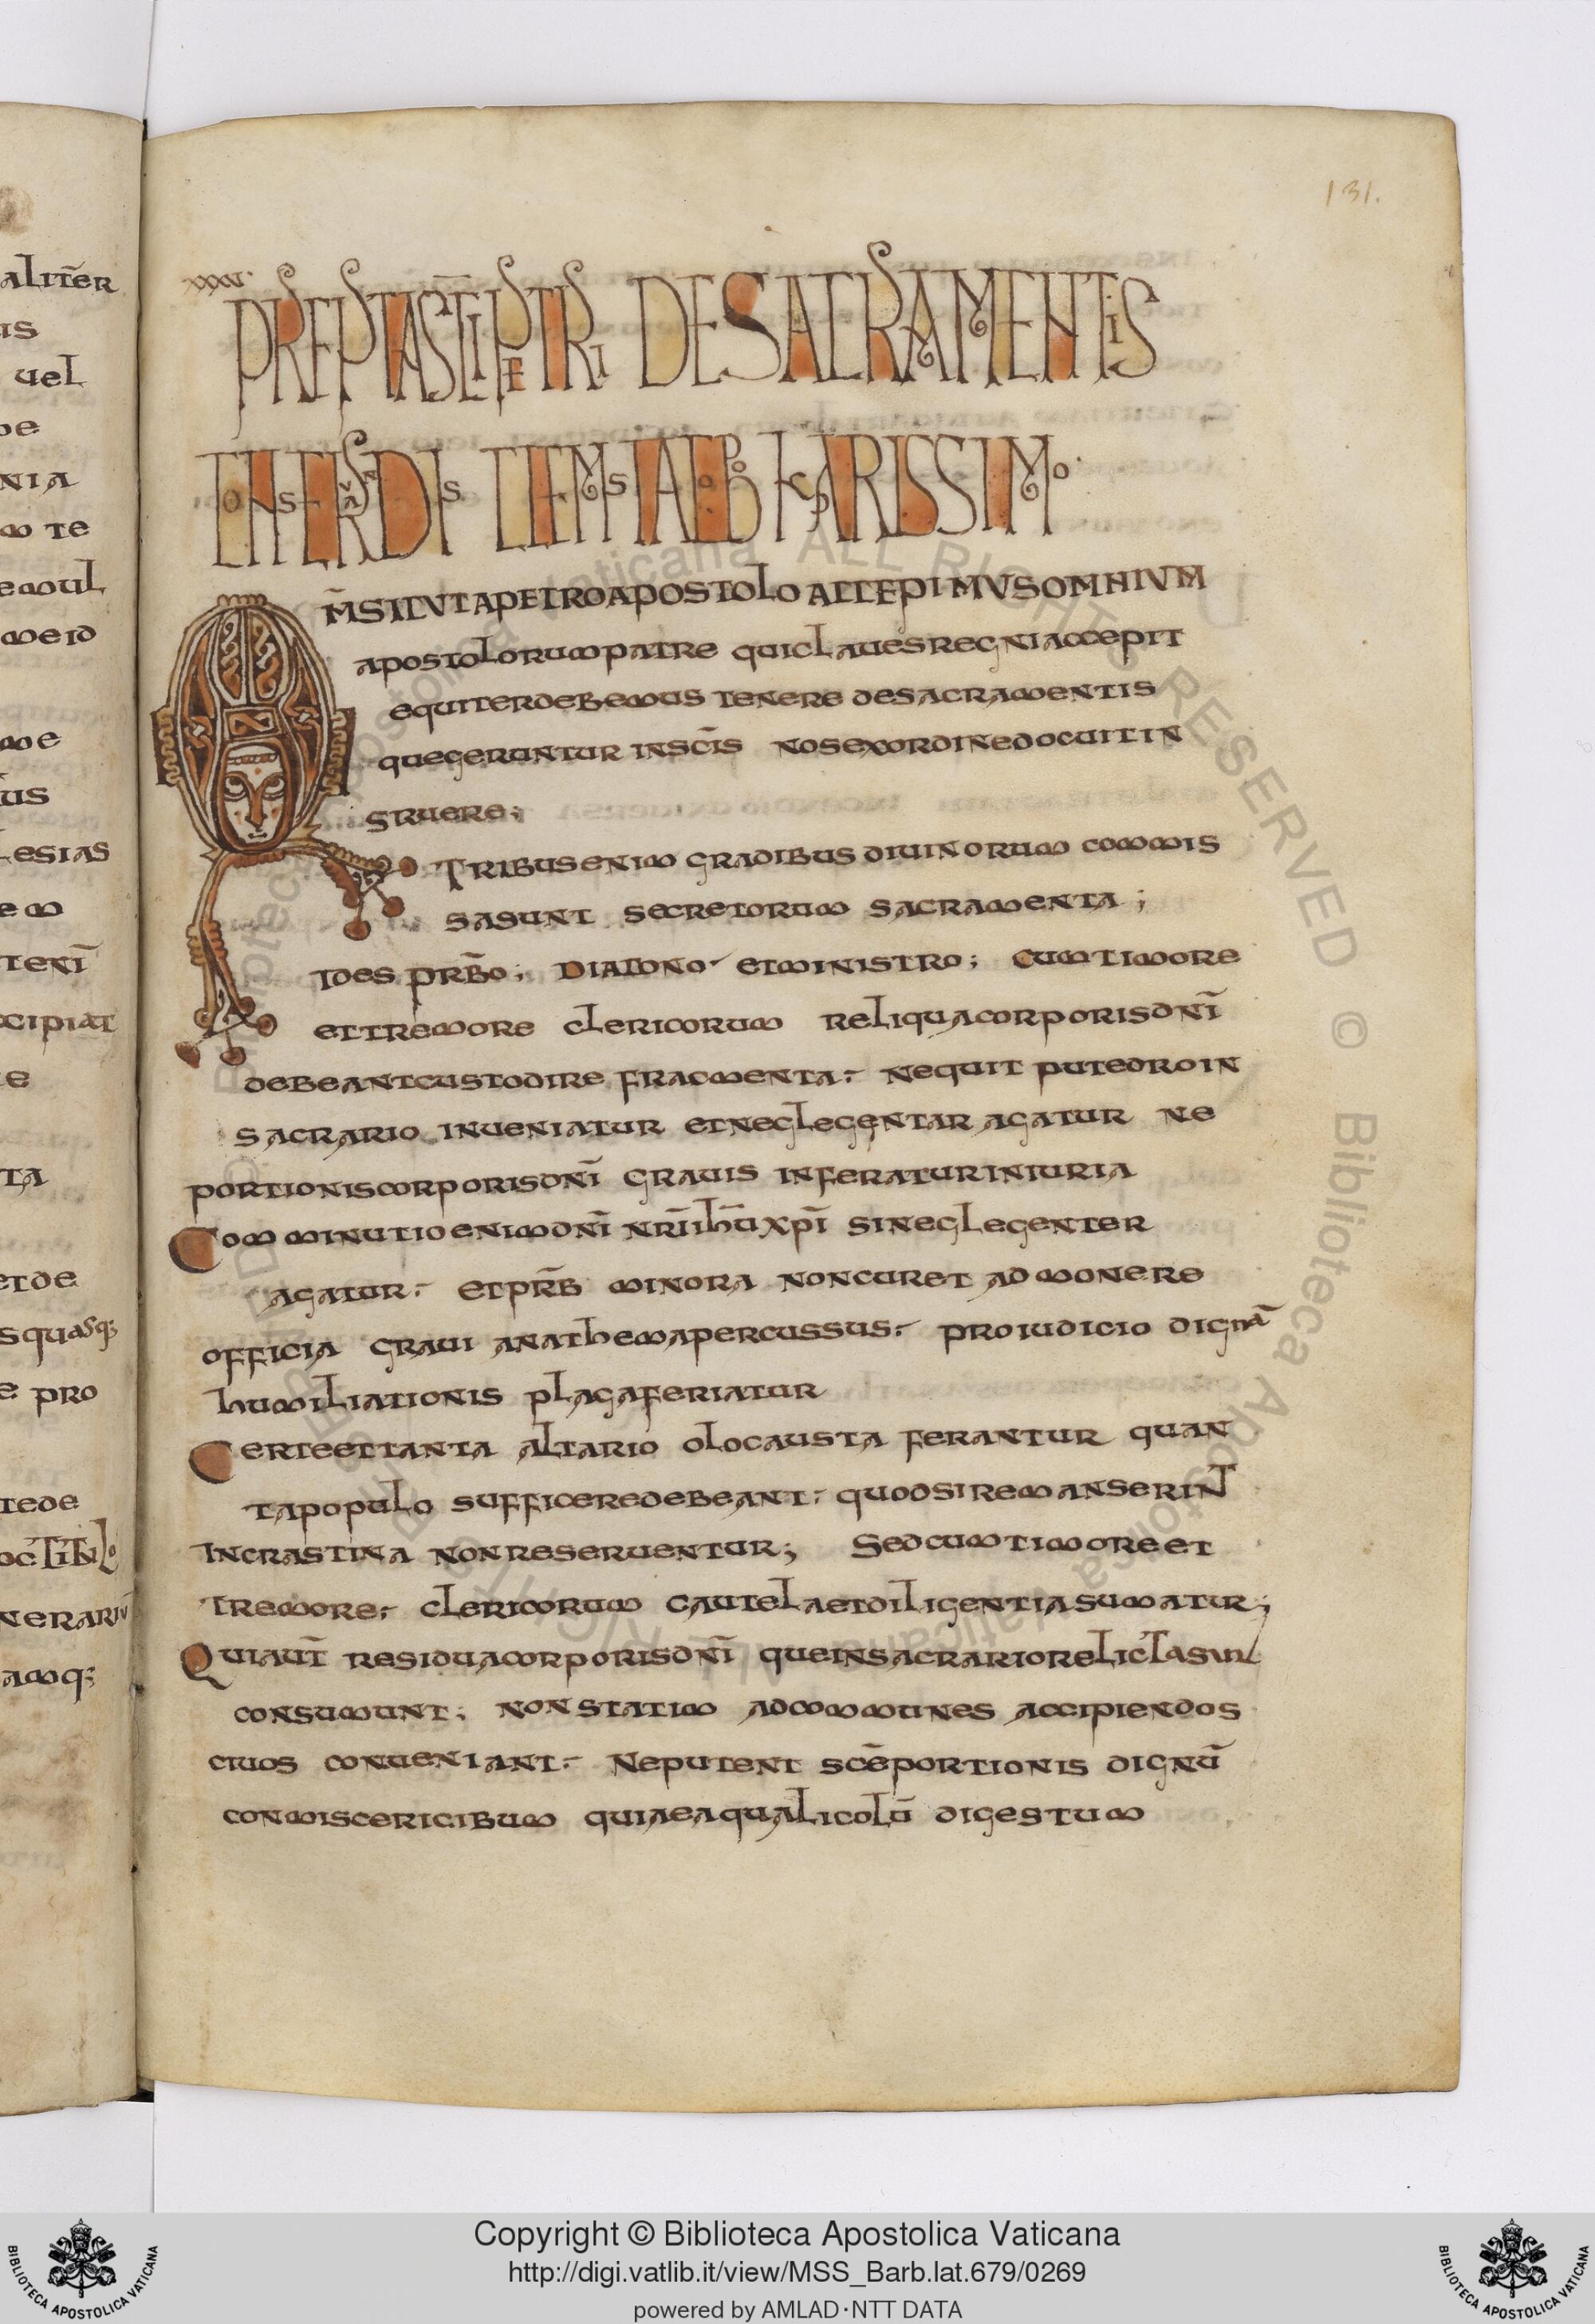 131.
XXXVI.
PRECEPTA SCI PETRI DE SACRAMENTIS
CONSERVANDIS CLEMENS IACOBO KARISSIMO
QM̄ SICUT A PETRO APOSTOLO ACCEPIMUS OMNIUM
apostolorum patre qui claues regni accepit
equiter debemus tenere de sacramentis
que geruntur in sc̄is nos ex ordine docuit in
sruere;
Tribus enim gradibus diuinorum commis
sa sunt secretorum sacramenta;
pr̄bo; diacono et ministro; cum timore
et tremore clericorum reliqua corporis dn̄i
debeant custodire fragmenta. nequit putedro in
sacrario inueniatur et neglegentar agatur ne
portionis corporis dn̄i grauis inferatur iniuria
Comminutio enim dn̄i nr̄i ih̄u xp̄i si neglegenter
agatur. et pr̄b minora non curet admonere
officia graui anathema percussus. pro iudicio dignā
humiliationis plaga feriatur
Certe et tanta altario olocausta ferantur quan
ta populo sufficere debeant. quod si remanserint
In crastina non reseruentur; Sed cum timore et
tremore. clericorum cautela et diligentia sumatur;
Qui aut̄ residua corporis dn̄i que in sacrario relicta sunt
consumunt; non statim ad communes accipiendos
ciuos conueniant. Ne putent sc̄e portionis dignū
conmisceri cibum quia ea qualicolū digestum
aliter
us
uel
be
nia
m te
emul
meid
me
lesias
em
teni
cipiat
e
ta
et de
squasq;
e pro
tede
nerariū
amq;
Biblioteca Apostolica Vaticana ALL RIGHTS RESERVED © Biblioteca Apostolica Vaticana ALL RIGHTS RESERVED ©
Copyright © Biblioteca Apostolica Vaticana
http://digi.vatlib.it/view/MSS_Barb.lat.679/0269
powered by AMLAD·NTT DATA
BIBLIOTECA APOSTOLICA VATICANA
BIBLIOTECA APOSTOLICA VATICANA